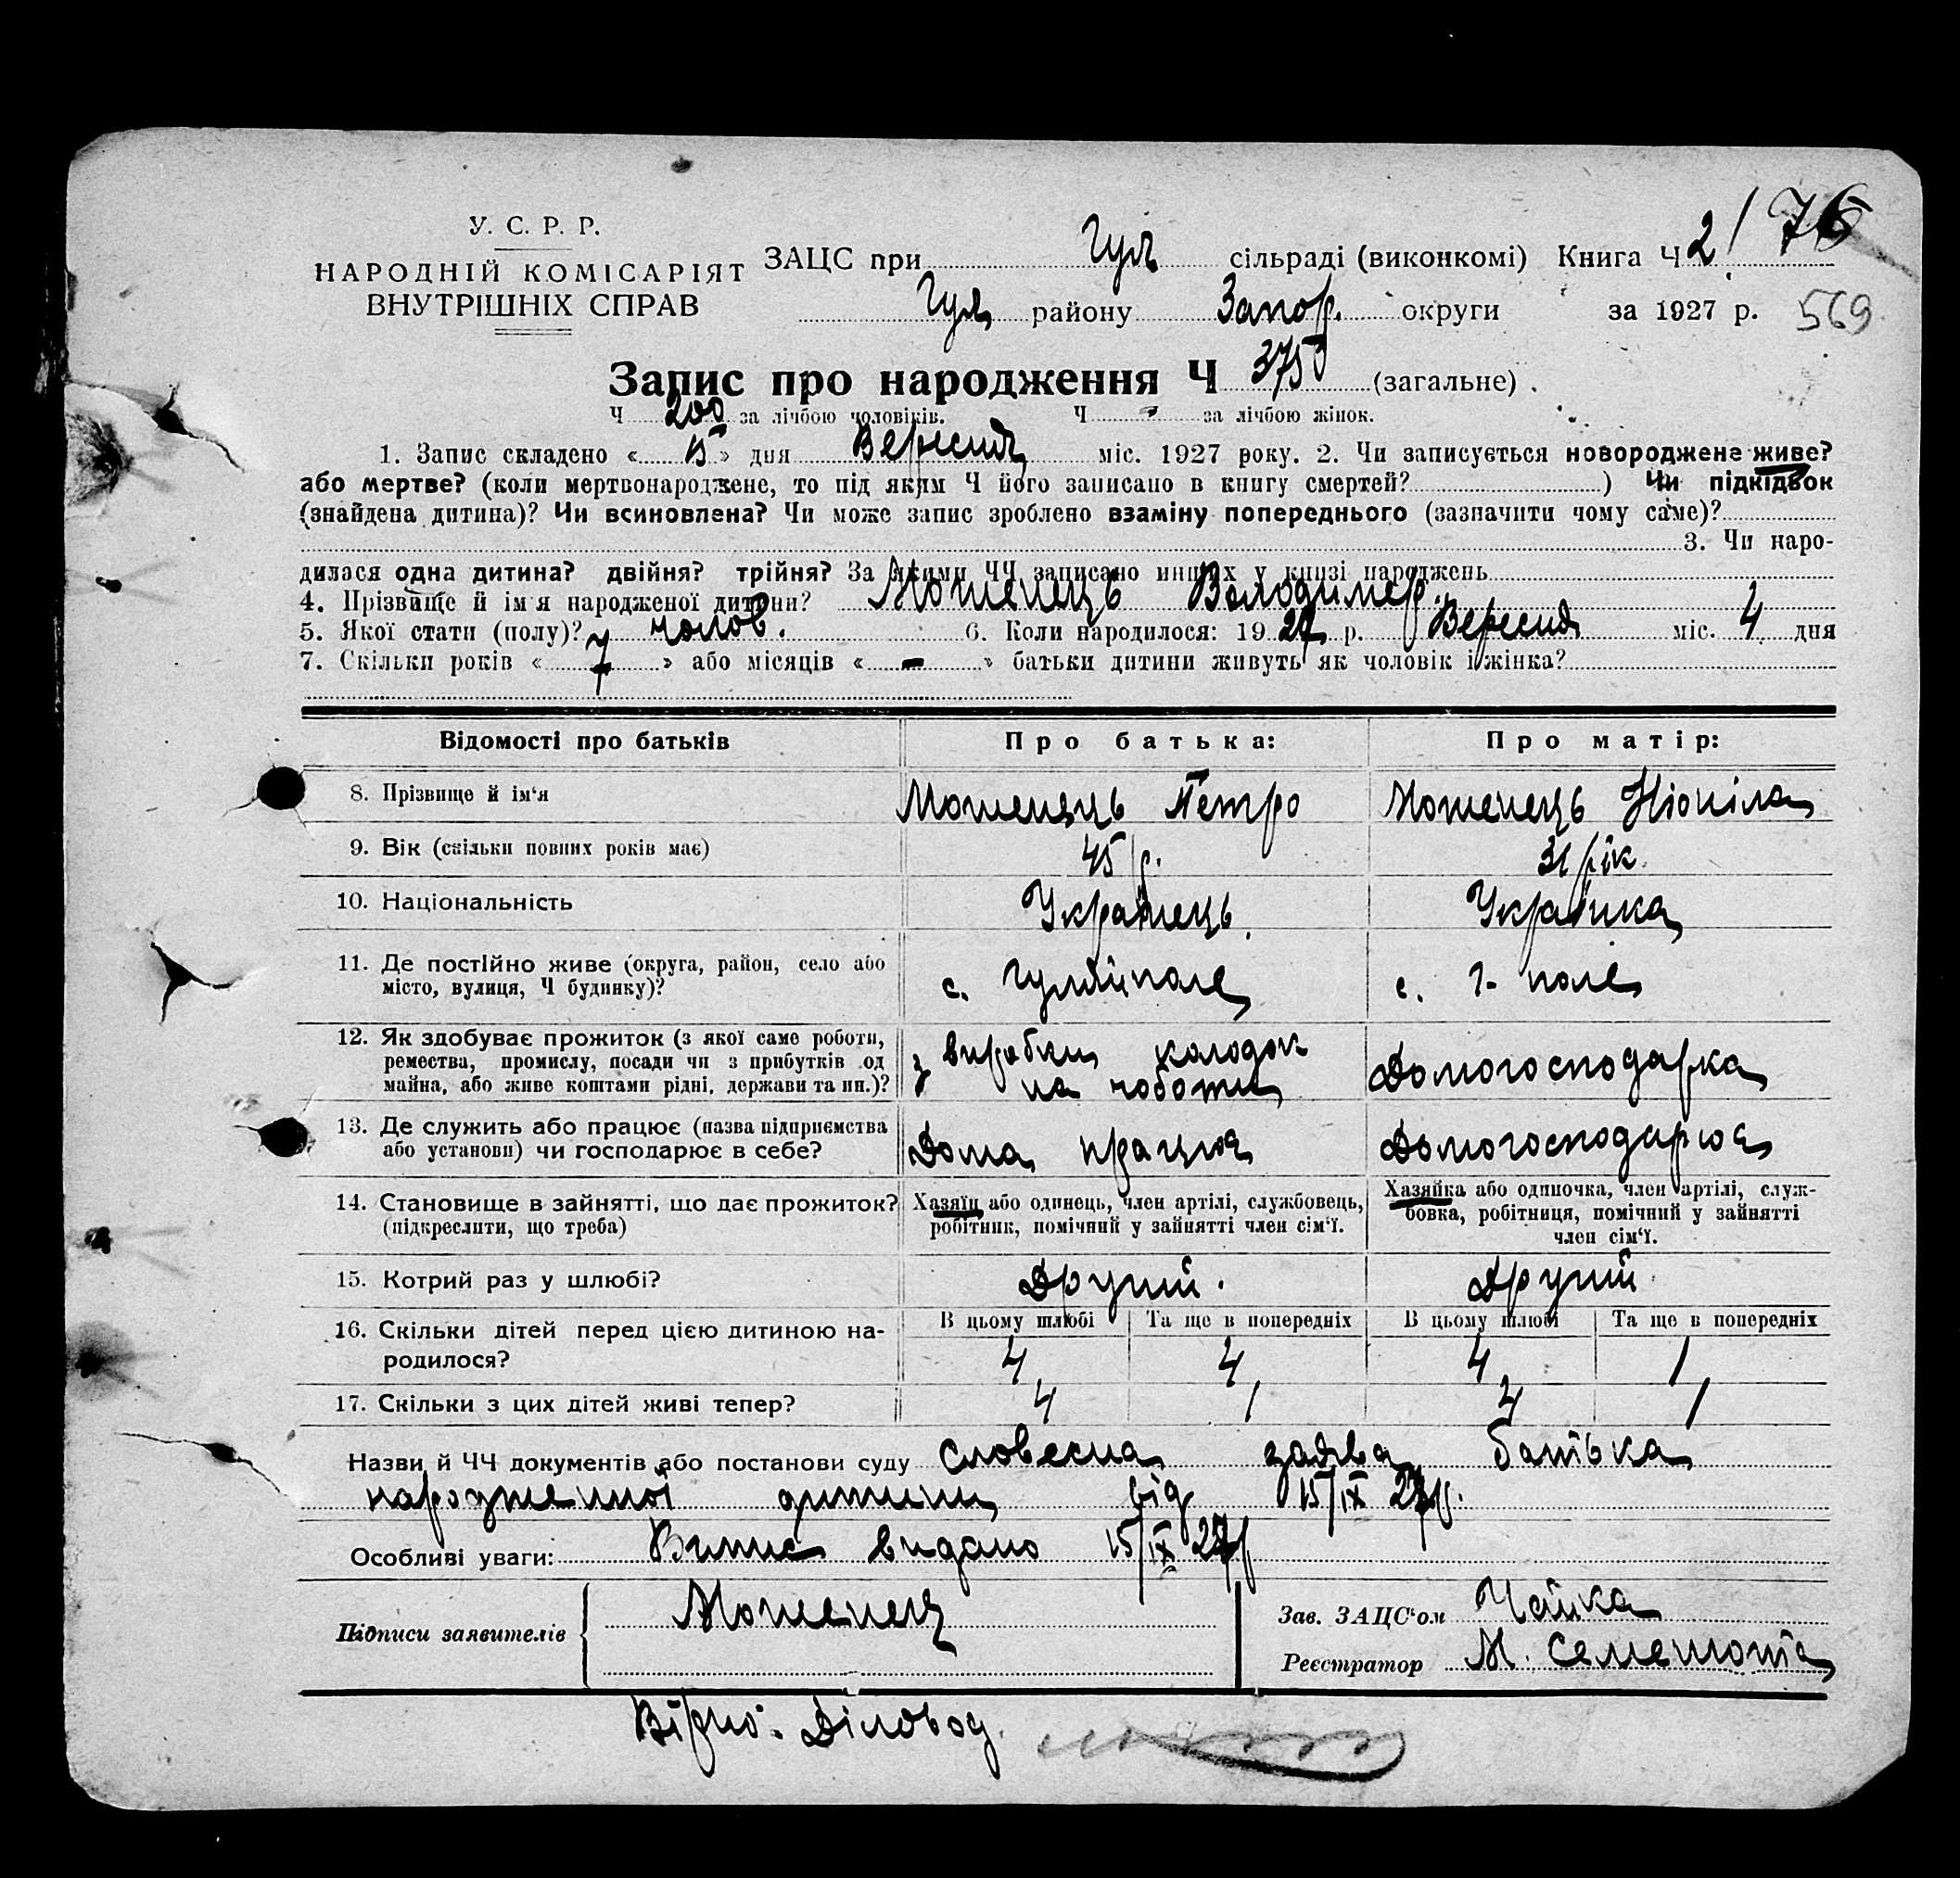 У. С. Р. Р.
НАРОДНІЙ КОМІСАРІЯТ
ВНУТРІШНІХ СПРАВ
ЗАЦС при Гул сільраді (виконкомі) Книга Ч 2/76
Гул району Запор. округи за 1927 р. 569
Запис про народження Ч 375 (загальне).
Ч 200 за лічбою чоловіків. Ч - за лічбою жінок.
1. Запис складено «15» дня Вересня міс. 1927 року. 2. Чи записується новороджене живе?
або мертве? (коли мертвонароджене, то під яким Ч його записано в книгу смертей?) Чи підкідьок
(знайдена дитина)? Чи всиновлена? Чи може запис зроблено взаміну попереднього (зазначити чому саме)?
3. Чи наро-
дилася одна дитина? двійня? трійня? За якими ЧЧ записано инших у книзі народжень
4. Прізвище й ім'я народженої дитини? Моженець Володимер.
5. Якої стати (полу)? чолов. 6. Коли народилося: 1927 р. Вересня міс. 4 дня
7. Скільки років «7» або місяців «-» батьки дитини живуть як чоловік і жінка?
Відомості про батьків Про батька: Про матір:
8. Прізвище й ім'я Моженець Петро Моженець Ніоніла
9. Вік (скільки повних років має) 45 р. 31 рік
10. Національність Українець Українка
11. Де постійно живе (округа, район, село або
місто, вулиця, Ч будинку)? с. Гуляйполе с. Г-поле
12. Як здобуває прожиток (з якої саме роботи,
ремества, промислу, посади чи з прибутків од
майна, або живе коштами рідні, держави та ин.)?
з виробки колодок
на чоботи
Домогосподарка
13. Де служить або працює (назва підприємства
або установи) чи господарює в себе?
Дома працює Домогосподарює
14. Становище в зайнятті, що дає прожиток?
(підкреслити, що треба)
Хазяїн або одинець, член артілі, службовець,
робітник, помічний у зайнятті член сім'ї.
Хазяйка або одиночка, член артілі, служ-
бовка, робітниця, помічний у зайнятті
член сім'ї.
15. Котрий раз у шлюбі? Другий. Другий
16. Скільки дітей перед цією дитиною на-
родилося?
В цьому шлюбі Та ще в попередніх В цьому шлюбі Та ще в попередніх
4 4 4 1
17. Скільки з цих дітей живі тепер? 4 1 4 1
Назви й ЧЧ документів або постанови суду словесна заява батька
народженної дитини від 15/IX 27р.
Особливі уваги: Випис видано 15/IX 27р
Підписи заявителів Моженец
Зав. ЗАЦС'ом Чайка
Реєстратор М. Семенюта
Вірно: Діловод